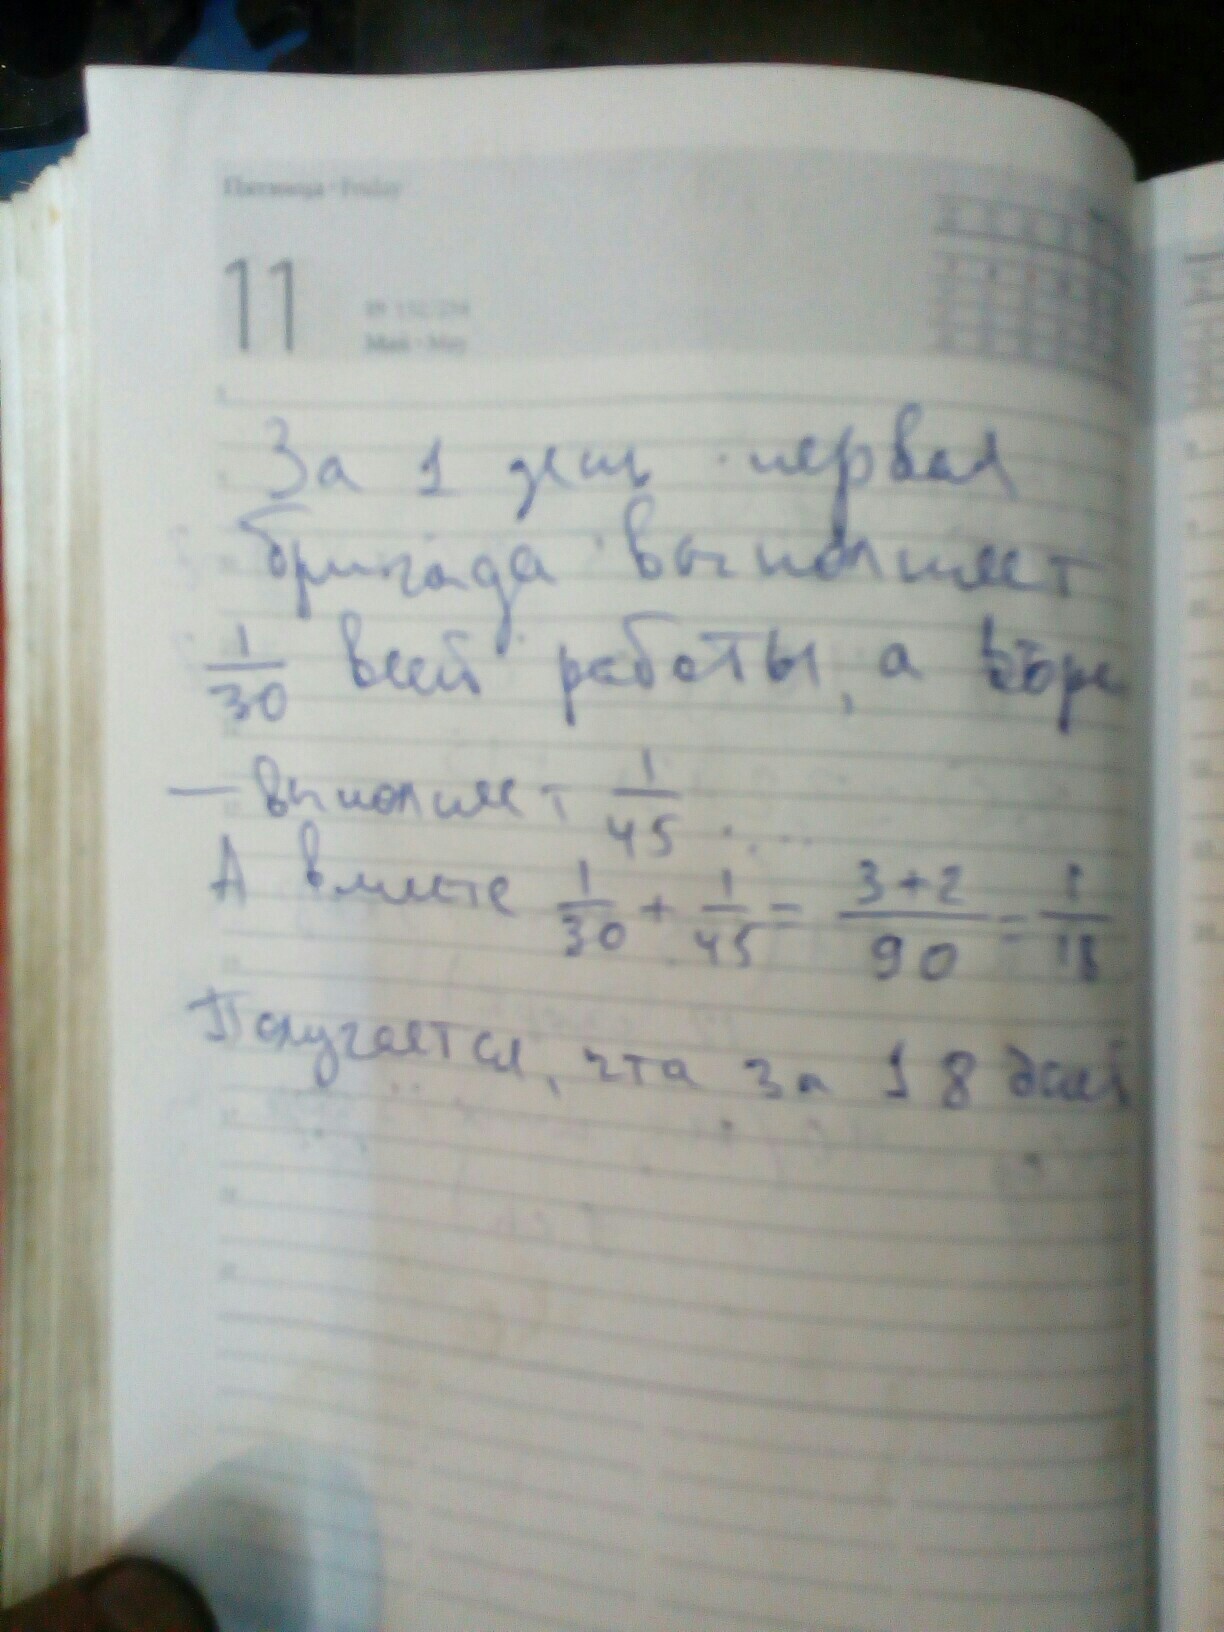 Пятница · Friday
11
Май · May
За 1 день первая
бригада выполняет
1/30 всей работы, а втора
— выполняет 1/45
А вместе 1/30 + 1/45 = 3+2/90 = 1/18
Получается, что за 18 дней